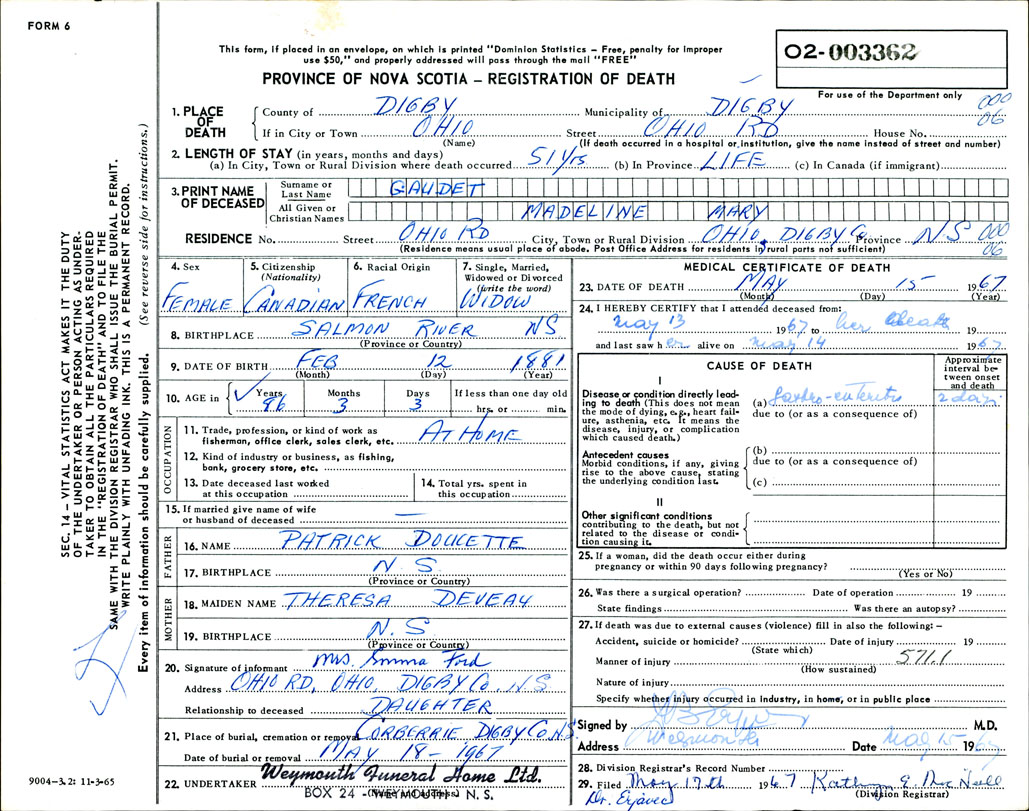 FORM 6
This form, if placed in an envelope, on which is printed "Dominion Statistics – Free, penalty for improper
use $50," and properly addressed will pass through the mail "FREE"
PROVINCE OF NOVA SCOTIA – REGISTRATION OF DEATH
02-003362
For use of the Department only
000
06
1. PLACE OF DEATH
County of DIGBY Municipality of DIGBY
If in City or Town OHIO Street OHIO RD House No.
(Name) (If death occurred in a hospital or institution, give the name instead of street and number)
2. LENGTH OF STAY (in years, months and days)
(a) In City, Town or Rural Division where death occurred 51 Yrs (b) In Province LIFE (c) In Canada (if immigrant)
3. PRINT NAME OF DECEASED
Surname or Last Name GAUDET
All Given or Christian Names MADELINE MARY
RESIDENCE No. Street OHIO RD City, Town or Rural Division OHIO, DIGBY Co Province NS 000
06
(Residence means usual place of abode. Post Office Address for residents in rural parts not sufficient)
4. Sex
FEMALE
5. Citizenship
(Nationality)
CANADIAN
6. Racial Origin
FRENCH
7. Single, Married,
Widowed or Divorced
(write the word)
WIDOW
8. BIRTHPLACE SALMON RIVER NS
(Province or Country)
9. DATE OF BIRTH FEB 12 1881
(Month) (Day) (Year)
10. AGE in Years Months Days If less than one day old
86 3 3 hrs. or min.
OCCUPATION
11. Trade, profession, or kind of work as
fisherman, office clerk, sales clerk, etc. AT HOME
12. Kind of industry or business, as fishing,
bank, grocery store, etc.
13. Date deceased last worked
at this occupation
14. Total yrs. spent in
this occupation
15. If married give name of wife
or husband of deceased —
FATHER
16. NAME PATRICK DOUCETTE
17. BIRTHPLACE N S.
(Province or Country)
MOTHER
18. MAIDEN NAME THERESA DEVEAU
19. BIRTHPLACE N. S
(Province or Country)
20. Signature of informant Mrs Emma Ford
Address OHIO RD, OHIO, DIGBY Co. NS
Relationship to deceased DAUGHTER
21. Place of burial, cremation or removal CORBERRIE DIGBY CO N.S.
Date of burial or removal MAY 18 - 1967
22. UNDERTAKER Weymouth Funeral Home Ltd.
BOX 24 - WEYMOUTH N. S.
MEDICAL CERTIFICATE OF DEATH
23. DATE OF DEATH MAY 15 1967
(Month) (Day) (Year)
24. I HEREBY CERTIFY that I attended deceased from:
May 13 1967 to her death 19
and last saw her alive on May 14 1967
CAUSE OF DEATH
Approximate
interval be-
tween onset
and death
I
Disease or condition directly lead-
ing to death (This does not mean
the mode of dying, e.g., heart fail-
ure, asthenia, etc. It means the
disease, injury, or complication
which caused death.)
(a) Gastro-enteritis 2 days
due to (or as a consequence of)
Antecedent causes
Morbid conditions, if any, giving
rise to the above cause, stating
the underlying condition last.
(b)
due to (or as a consequence of)
(c)
II
Other significant conditions
contributing to the death, but not
related to the disease or condi-
tion causing it.
25. If a woman, did the death occur either during
pregnancy or within 90 days following pregnancy?
(Yes or No)
26. Was there a surgical operation? Date of operation 19
State findings Was there an autopsy?
27. If death was due to external causes (violence) fill in also the following: –
Accident, suicide or homicide? Date of injury 19
(State which)
Manner of injury 571.1
(How sustained)
Nature of injury
Specify whether injury occurred in industry, in home, or in public place
Signed by M.D.
Address Weymouth Date May 15 1967
28. Division Registrar's Record Number
29. Filed May 17th 1967 Kathryn E. Mac Neill
Dr. Erjavec (Division Registrar)
SEC. 14 – VITAL STATISTICS ACT MAKES IT THE DUTY
OF THE UNDERTAKER OR PERSON ACTING AS UNDER-
TAKER TO OBTAIN ALL THE PARTICULARS REQUIRED
IN THE "REGISTRATION OF DEATH" AND TO FILE THE
SAME WITH THE DIVISION REGISTRAR WHO SHALL ISSUE THE BURIAL PERMIT.
WRITE PLAINLY WITH UNFADING INK. THIS IS A PERMANENT RECORD.
Every item of information should be carefully supplied. (See reverse side for instructions.)
9004-3.2: 11-3-65